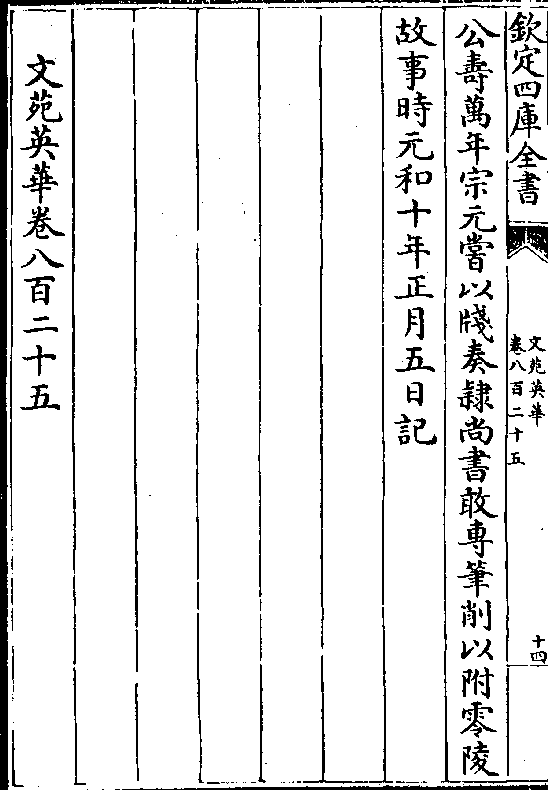 欽定四庫全書
文苑英華
卷八百二十五
十四
公壽萬年宗元嘗以牋奏隷尚書敢專筆削以附零陵
故事時元和十年正月五日記
文苑英華卷八百二十五